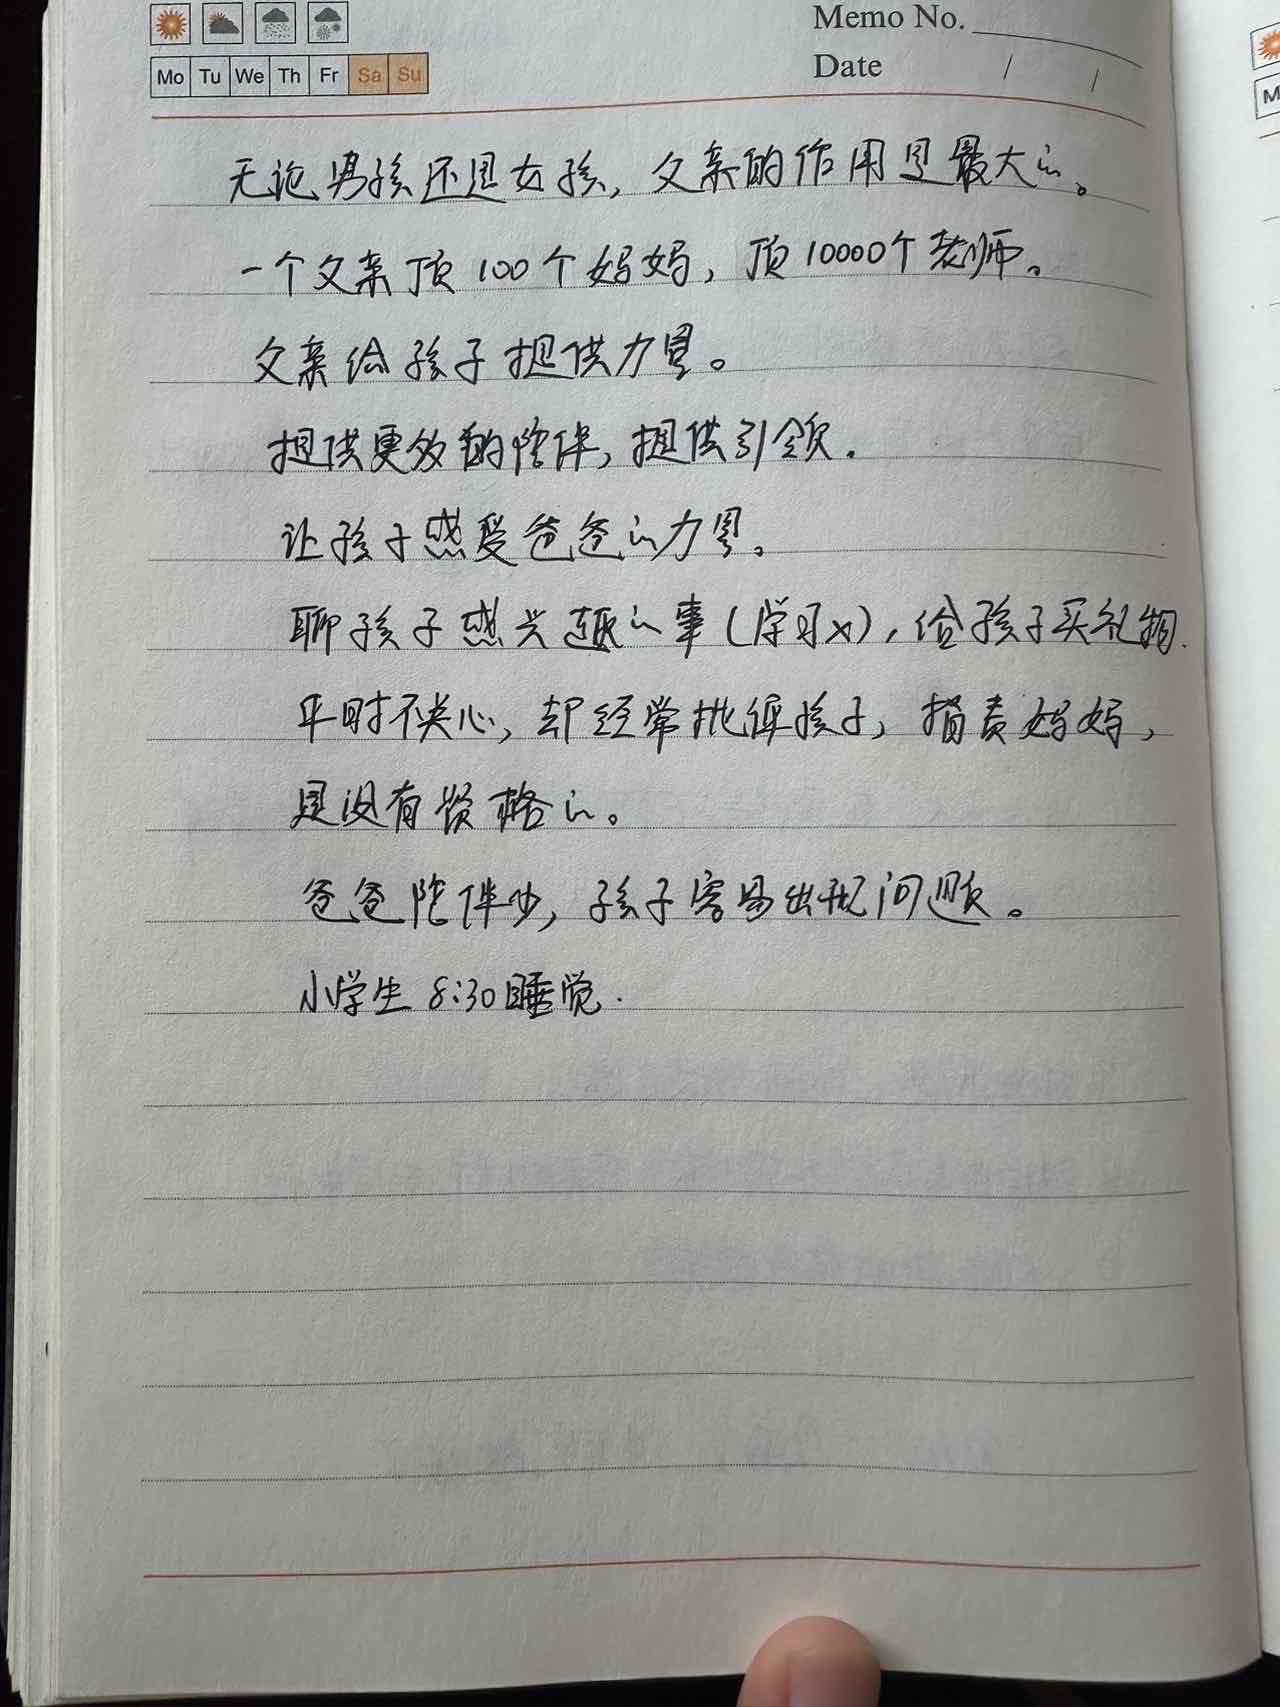 Memo No.
Mo Tu We Th Fr Sa Su
Date / /
无论男孩还是女孩，父亲的作用是最大的。
一个父亲顶100个妈妈，顶10000个老师。
父亲给孩子提供力量。
提供更效的陪伴，提供引领.
让孩子感受爸爸的力量。
聊孩子感兴趣的事(学习x)，给孩子买礼物.
平时不关心，却经常批评孩子，指责妈妈，
是没有资格的。
爸爸陪伴少，孩子容易出现问题。
小学生8:30睡觉.